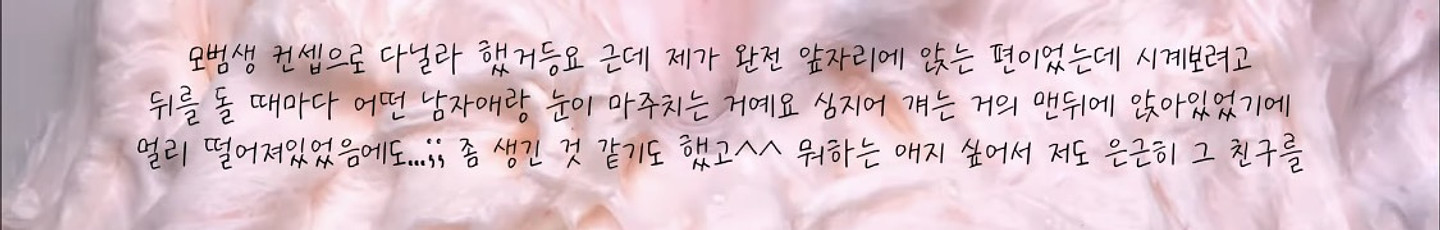 모범생 컨셉으로 다닐라 했거등요 근데 제가 완전 앞자리에 앉는 편이었는데 시계보려고
뒤를 돌 때마다 어떤 남자애랑 눈이 마주치는 거예요 심지어 걔는 거의 맨뒤에 앉아있었기에
멀리 떨어져있었음에도...;; 좀 생긴 것 같기도 했고^^ 뭐하는 애지 싶어서 저도 은근히 그 친구를